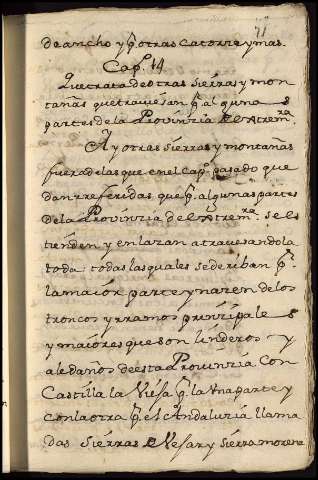 71
de ancho y pr. otras catorze y mas.
Capo. 14
Que trata de otras sierras y mon
tañas que traviesan pr. alguna s
partes de la Provinzia de Extremra.
Ay otras sierras y montañas
fuera de las que en el Capo. pasado que
dan rreferidas que pr. algunas partes
de la Provinzia de Extremra. se es
tienden y enlazan atravesandola
toda todas las quales se deriban pr.
la maior parte y nazen de los
troncos y rramos prinzipale s
y maiores que son linderos y
aledaños de esta Provinzia con
Castilla la Vieja pr. la una parte y
con la otra pr. el Andaluzia llama
das sierras de Vejar y sierra morena